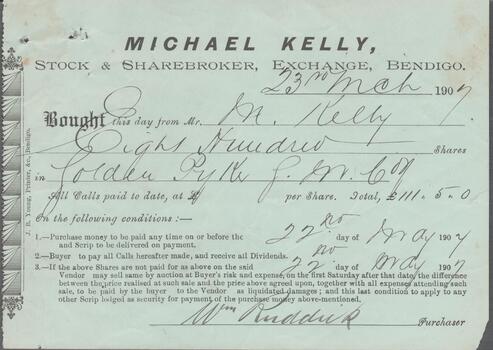 MICHAEL KELLY,
STOCK & SHAREBROKER, EXCHANGE, BENDIGO.
23rd Mch 1907
Bought this day from Mr. M. Kelly
Eight Hundred Shares
in Golden Pyke G. M. Coy
All Calls paid to date, at £ per Share. Total, £111.5.0
On the following conditions :—
1.—Purchase money to be paid any time on or before the 22nd day of May 1907
and Scrip to be delivered on payment.
2.—Buyer to pay all Calls hereafter made, and receive all Dividends.
3.—If the above Shares are not paid for as above on the said 22nd day of May 1907
Vendor may sell same by auction at Buyer's risk and expense, on the first Saturday after that date, the difference
between the price realised at such sale and the price above agreed upon, together with all expenses attending such
sale, to be paid by the buyer to the Vendor as liquidated damages; and this last condition to apply to any
other Scrip lodged as security for payment of the purchase money above-mentioned.
Wm Ruddick Purchaser
J. B. Young, Printer, &c., Bendigo.